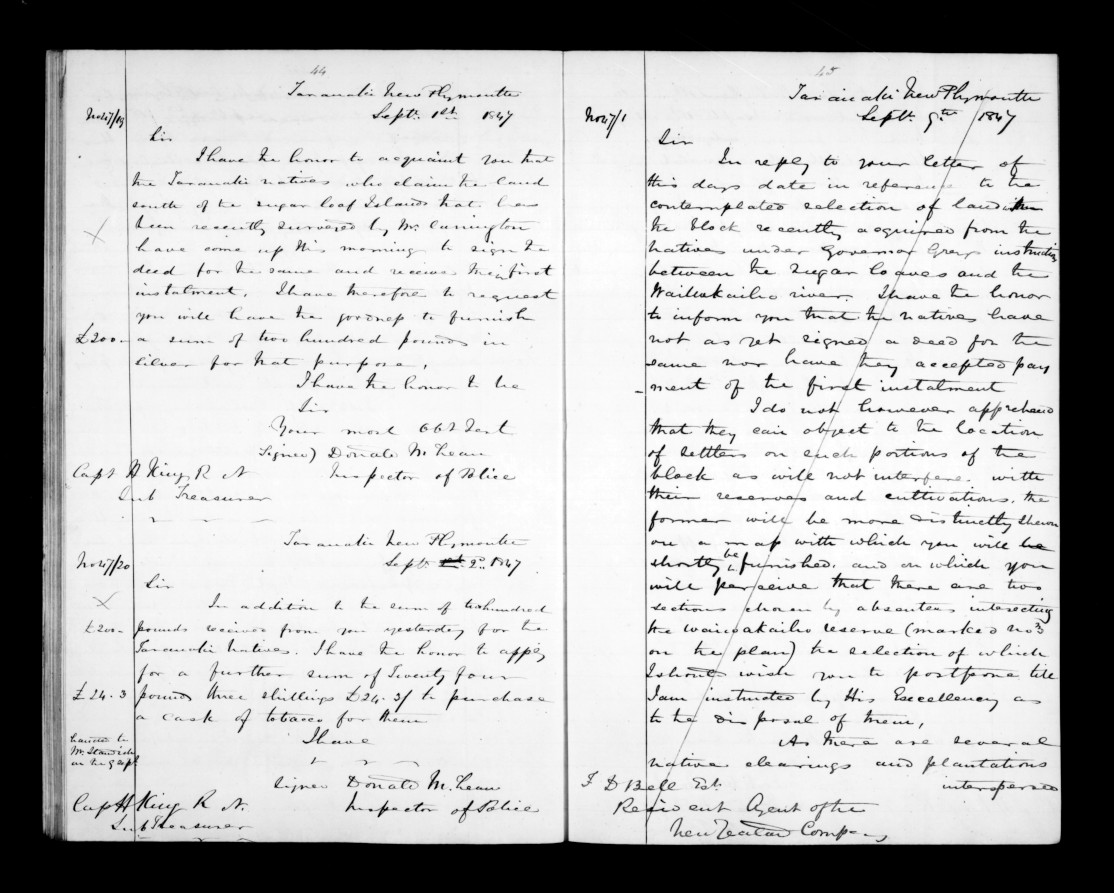 44
Taranaki New Plymouth
No 47/19 Septr. 1st. 1847
Sir
I have the honor to acquaint you that
the Taranaki natives who claim the land
south of the sugar loaf Islands that has
been recently surveyed by Mr. Carrington
have come up this morning to sign the
deed for the same and receive their first
instalment. I have therefore to request
you will have the goodness to furnish
£200- a sum of two hundred pounds in
silver for that purpose,
I have the honor to be
Sir
Your most Obt Sert
Signed) Donald McLean
Capt H King R N Inspector of Police
Sub Treasurer
Taranaki New Plymouth
No 47/20 Septr. 2nd. 1847
Sir
In addition to the sum of two hundred
£200- pounds received from you yesterday for the
Taranaki Natives. I have the honor to apply
for a further sum of Twenty four
£24.3 pounds three shillings £24.3/ to purchase
a cask of tobacco for them
handed to
Mr. Standish
on the 9 Sept
I have
Signed Donald McLean
Capt H King R N. Inspector of Police
Sub Treasurer
45
Taranaki New Plymouth
No 47/1 Septr. 9th. 1847
Sir
In reply to your letter of
this days date in reference to the
contemplated selection of land within
the block recently acquired from the
natives under Governor Greys instructions
between the sugar loaves and the
Waiwakaiho river. I have the honor
to inform you that the natives have
not as yet signed a deed for the
same nor have they accepted pay
ment of the first instalment
I do not however apprehend
that they can object to the location
of settlers on such portions of the
block as will not interfere with
their reserves and cultivations, the
former will be more distinctly shewn
on a map with which you will he
shortly be furnished. and on which you
will perceive that there are two
sections chosen by absentees intersecting
the waiwakaiho reserve (marked no 3
on the plan) the selection of which
I should wish you to postpone till
I am instructed by His Excellency as
to the disposal of them,
As there are several
native clearings and plantations
interspersed
F D Bell Esq.
Resident Agent of the
New Zealand Company